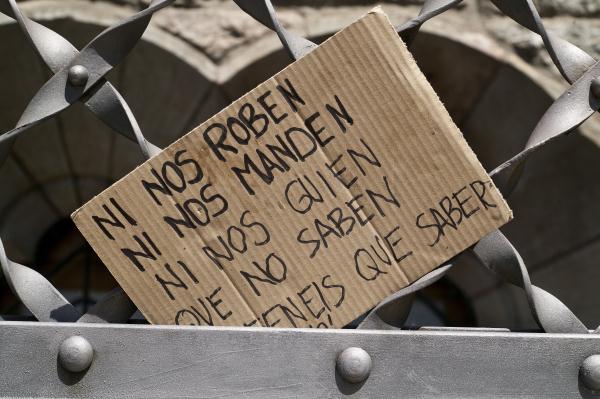 NI NOS ROBEN
NI NOS MANDEN
NI NOS GUIEN
QUE NO SABEN
QUE TENEIS QUE SABER